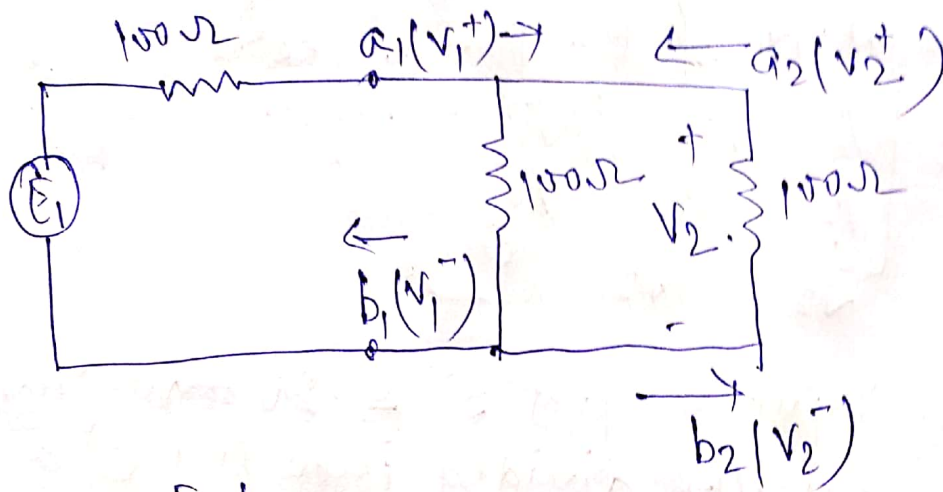 100Ω a₁(V₁⁺)→ ← a₂(V₂⁺)
E₁ 100Ω + V₂ - 100Ω
← b₁(V₁⁻)
→ b₂(V₂⁻)